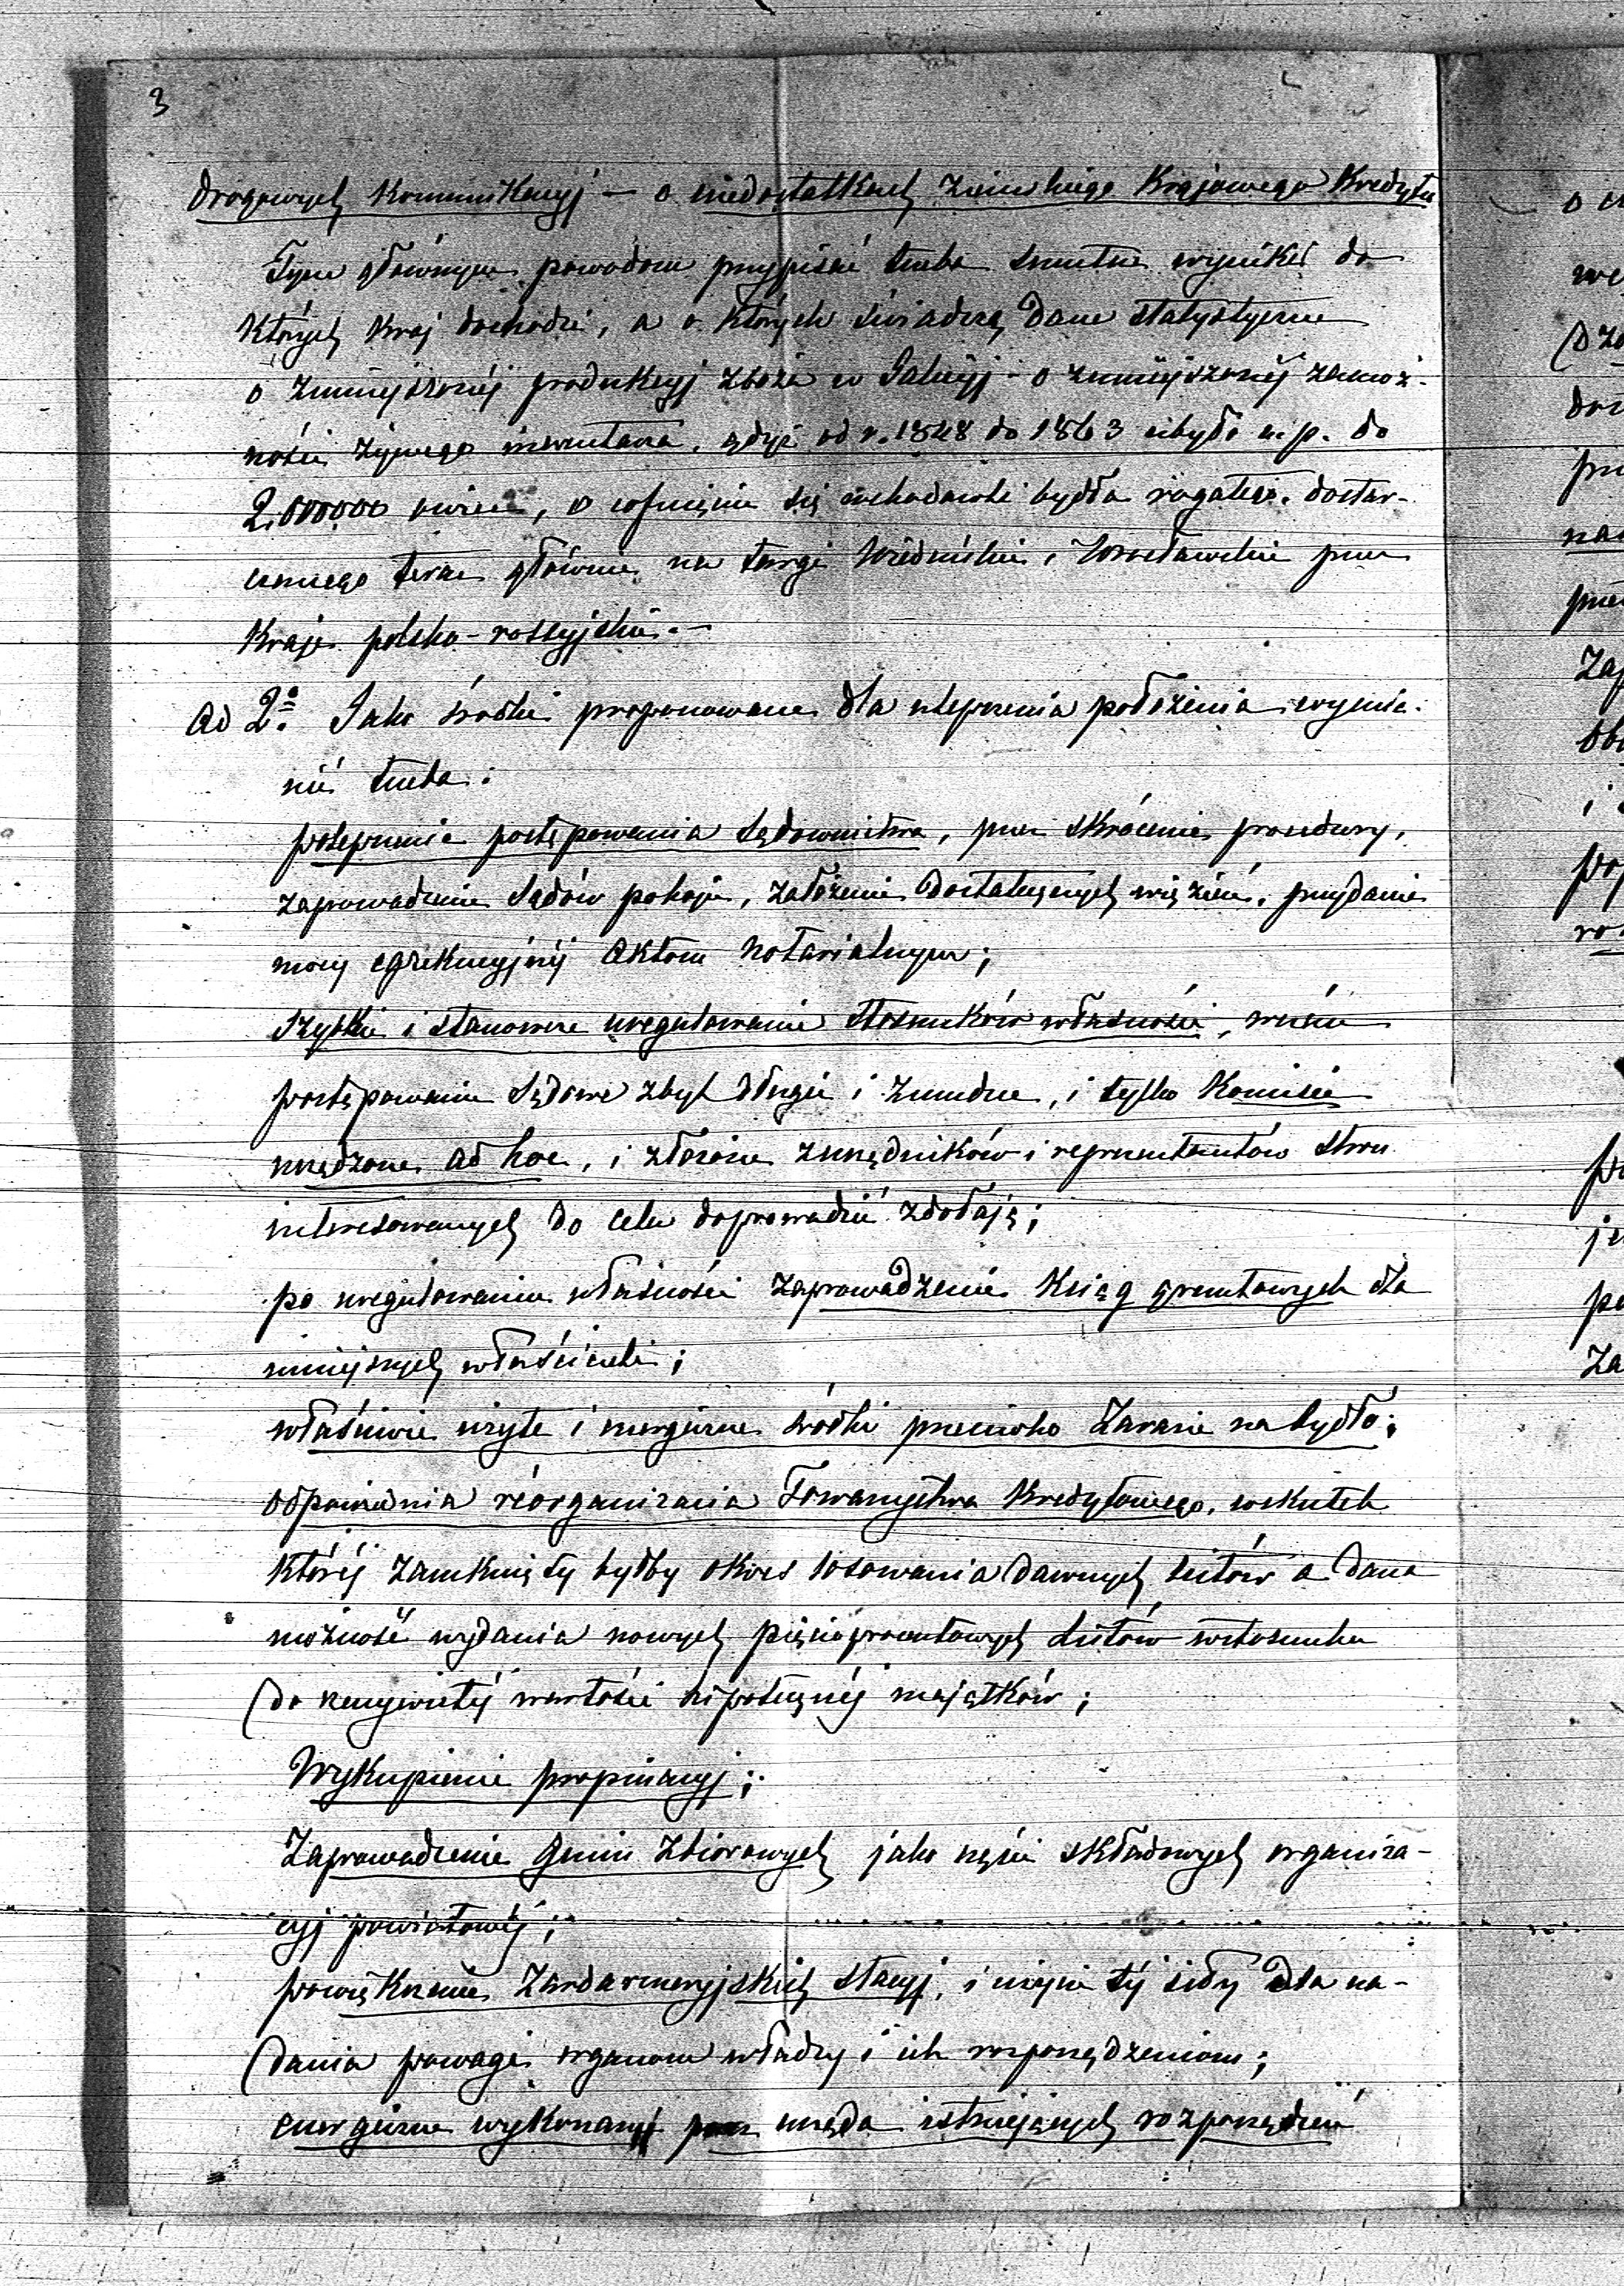 3
drogowych komunikacyj – o niedostatkach ziemskiego Krajowego Kredytu
Tym głównym powodom przypisać trzeba smutne wyniki do
których kraj dochodzi, a o których świadczą dane statystyczne
o zmniejszonéj produkcyj zboża w Galicyj – o zmniejszonéj zamoż-
ności żywego inwentarza, gdyż od r. 1848 do 1863 ubyło n.p. do
2.000000 owiec, o cofnięciu się chodowli bydła rogatego, dostar-
czanego teraz głównie na targi Wiedeńskie i Wrocławskie przez
Kraje polsko-rossyjskie. –
Ad 2o. Jako środki proponowane dla ulepszenia położenia wymie-
nić trzeba:
polepszenie postępowania Sądownictwa, przez skrócenie procedury,
zaprowadzenie Sądów pokoju, założenie dostatecznych więzień, przydanie
mocy egzekucyjnéj Aktom Notarialnym;
Szybkie i stanowcze uregulowanie stosunków własności,
postępowanie Sądowe zbyt długie i żmudne, i tylko Komisie
urządzone ad hoc, i złożone z urzędników i reprezentantów stron
interesowanych do celu doprowadzić zdołają;
po uregulowaniu własności zaprowadzenie Ksiąg gruntowych dla
mniejszych właścicieli;
właściwie użyte i energiczne środki przeciwko Zarazie na bydło;
odpowiednia réorganizacia Towarzystwa Kredytowego, wskutek
któréj zamknięty byłby okres losowania dawnych listów a dana
możność wydania nowych pięcioprocentowych Listów w stosunku
do rzeczywistéj wartości hipotecznéj majątków;
Wykupienie propinacyj;
Zaprowadzenie Gmin Zbiorowych jako części składowych organiza-
cyj powiatowéj;
powiększenie Żandarmeryjskich stacyj, i użycie téj siły dla na-
dania powagi organom władzy i ich rozporządzeniom;
energiczne wykonany przez urzęda istniejących rozporządzeń